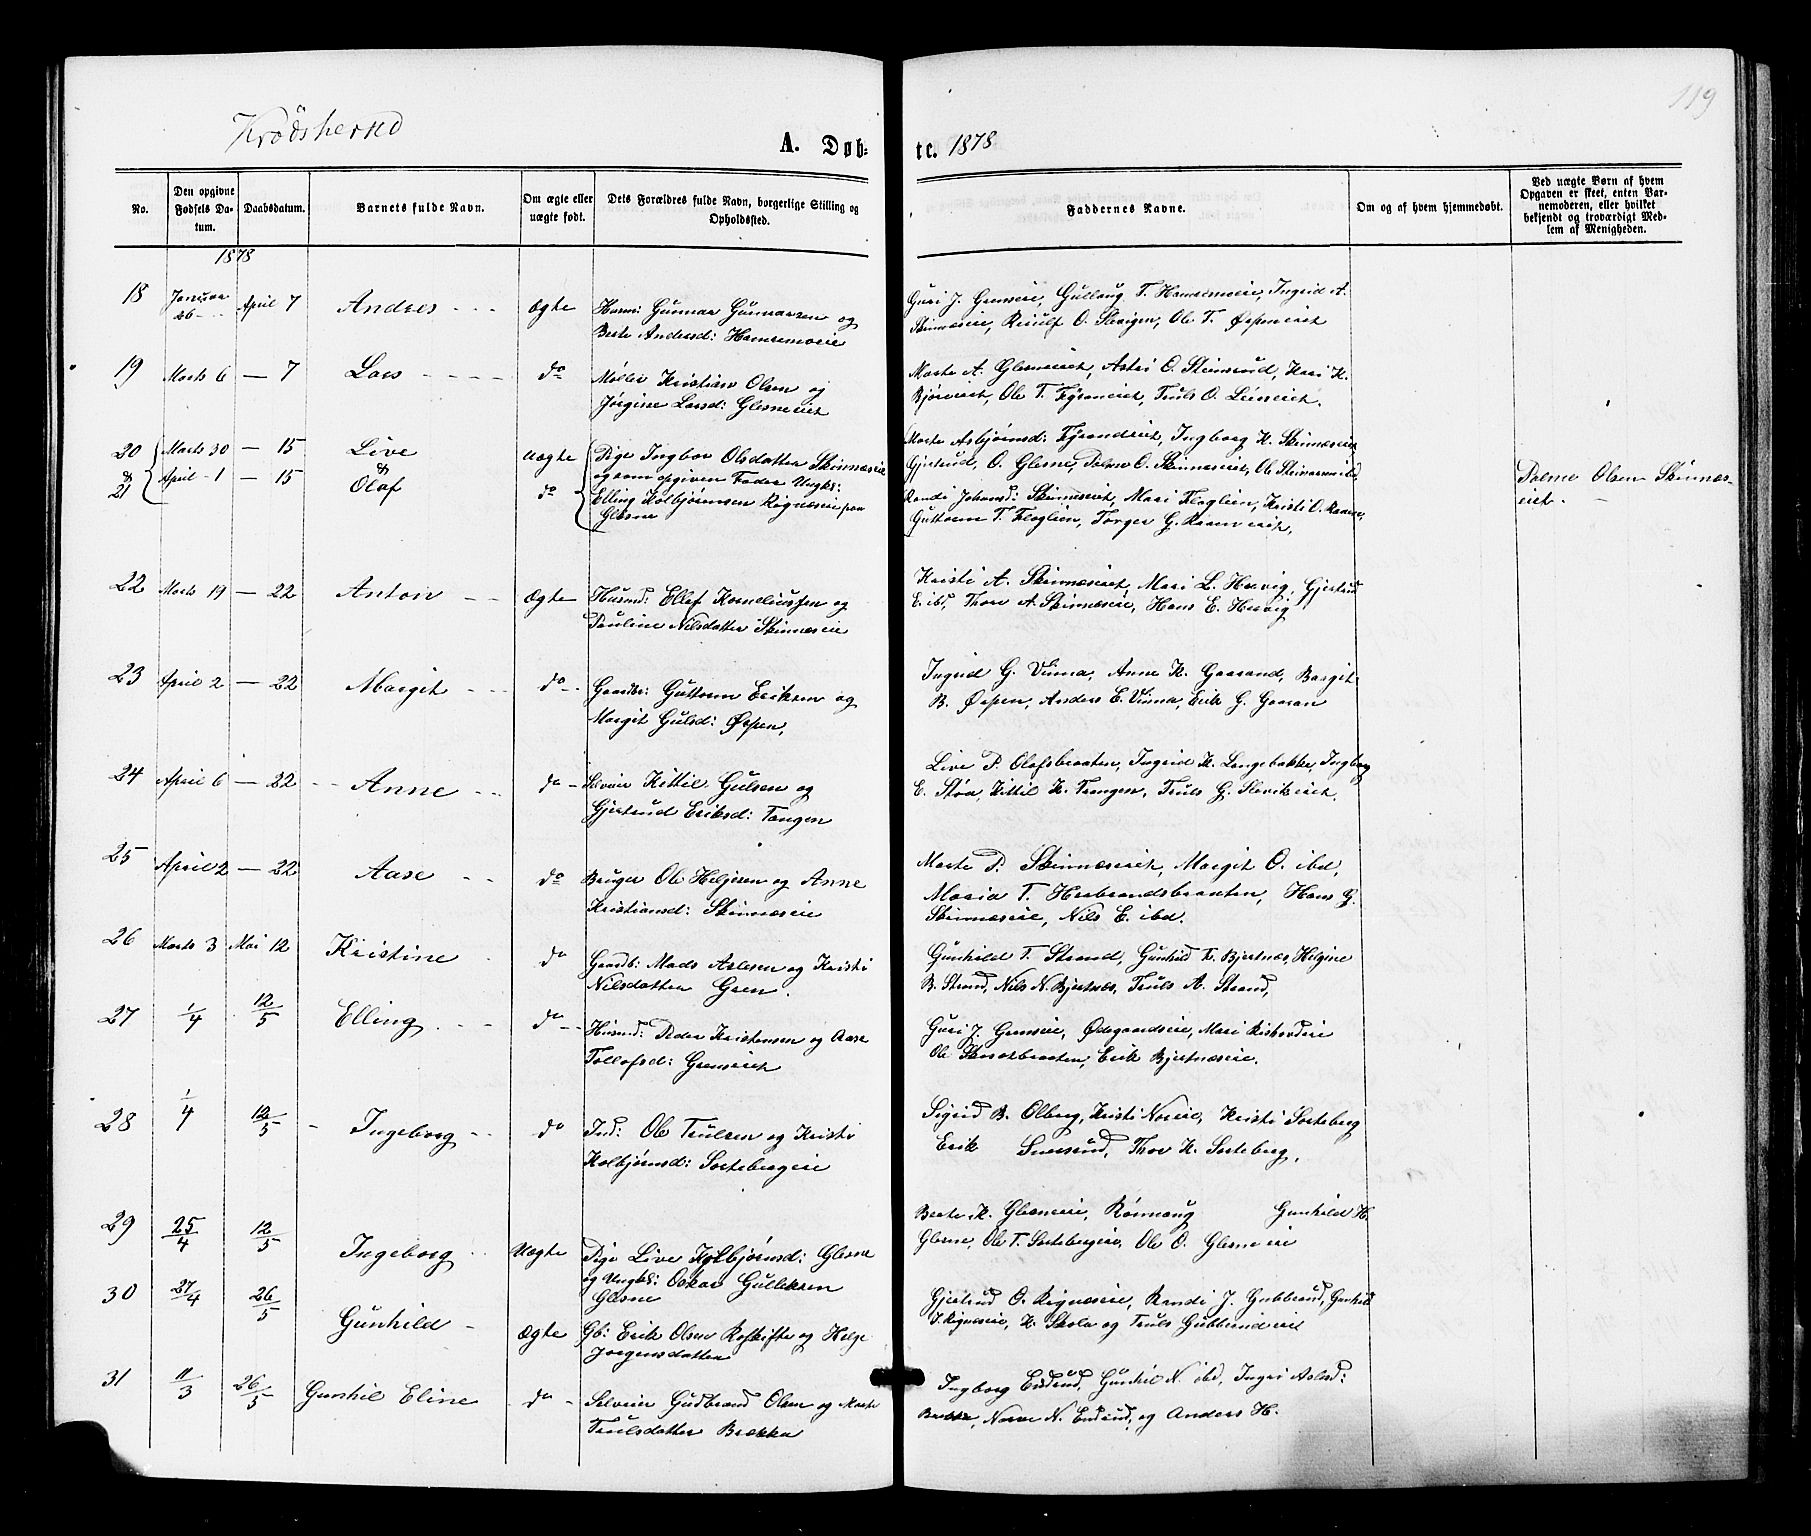 119
Krødsherred
A. Døb-
te. 1878
No.
Den opgivne Fødsels Da-
tum.
Daabsdatum.
Barnets fulde Navn.
Om ægte eller
uægte født.
Dets Forældres fulde Navn, borgerlige Stilling og
Opholdssted.
Faddernes Navne.
Om og af hvem hjemmedøbt.
Ved uægte Børn af hvem
Opgaven er skeet, enten Bar-
nemoderen, eller hvilket
bekjendt og troværdigt Med-
lem af Menigheden.
1878
18 Januar 26 April 7 Andres Ægte Husm: Gunnar Gunnarsen og
Berte Andersd: Hamremoeie
Guri J. Grenseie, Gullaug T. Hamremoeie, Ingrid A.
Skinnæseie, O. Slevigen, Ole T. Ørpeneiet
19 Marts 6 — 7 Lars do Møller Kristian Olsen og
Jørgine Larsd: Glesneeiet
Marte A. Glesneeiet, Astri O. Steinsrud, Kari K.
Bjøreeiet, Ole T. Fyraneiet, Truls O. Leinseiet.
20 Marts 30 — 15 Live uægte Pige Ingbor Olsdatter Skinnæseie
& 21 April 1 — 15 & Olaf do og som opgiven Fader Ungk:
Elling Kolbjørnsen Rignæseie paa
Glesne
Marte Asbjørnsd: Fyrandeiet, Ingborg K. Skinnæseiet
Gjertrud, O. Glesne, Palme O. Skinnæseiet, Ole
Randi Johansd: Skinnæseiet, Mari Floglien, Kristi O. Raaen,
Guttorm T. Floglien, Torger G. Raaeneiet,
Palme Olsen Skinnæs-
eiet. —
22 Marts 19 — 22 Anton Ægte Husmd: Ellef Korneliussen og
Pauline Nilsdatter Skinnæseie
Kristi A. Skinnæseiet, Mari L. Hervig, Gjertrud
E. ibd, Thore A. Skinnæseie, Hans E. Hervig
23 April 2 — 22 Margit do Gaardbr: Guttorm Eriksen og
Margit Gulsd: Ørpen,
Ingrid G. Vinna, Anne K. Gaarand, Bargit
B. Ørpen, Anders E. Vinna, Erik G. Gaaran
24 April 6 — 22 Anne do Selveier Kittil Gulsen og
Gjertrud Eriksd: Tangen
Live P. Olafsbraaten, Ingrid K. Langebakke, Ingborg
E. Støa, Kittil K. Trangen, Truls G. Slevikeiet.
25 April 2 — 22 Aase do Bruger Ole Helgesen og Anne
Kristiansd: Skinnæseie
Marte P. Skinnæseiet, Margit O. ibd,
Maria T. Herbrandsbraaten, Hans G.
Skinnæseie, Nils E. ibd.
26 Marts 3 Mai 12 Kristine do Gaardb: Mads Aslesen og Kristi
Nilsdatter Gren.
Gunhild T. Strand, Gunhild T. Bjertnæs, Helgine
B. Strand, Nils N. Bjertnæs, Truls A. Strand,
27 1/4 12/5 Elling do Husmd: Peder Kristensen og Aase
Tollofsd: Grenseiet
Guri J. Grenseie, Ødegaardseie, Mari
Ole Skaarbraaten, Erik Bjertnæseie.
28 1/4 12/5 Ingeborg do Ind: Ole Trulsen og Kristi
Kolbjørnsd: Sortebergeie
Sigrid B. Olberg, Kristi Noreie, Kristi Sorteberg
Erik Snersrud, Thor K. Sorteberg,
29 25/4 12/5 Ingeborg Uægte Pige Live Kolbjørnsd: Glesne
og Ungks: Oskar Gulleksen
Glesne
Berte K. Glesneeie, Rønnaug Gunhild H.
Glesne, Ole T. Sortebergeie, Ole O. Glesneeie
30 27/4 26/5 Gunhild Ægte Gb: Erik Olsen Rofskifte og Helge
Jorgensdatter
Gjertrud O. Rignæseie, Randi J. Gubbrud, Gunhild
J. Rignæseie, K. Skole og Truls Gubberudeiet
31 11/3 26/5 Gunhil Eline do Selveier Gudbrand Olsen og Marte
Trulsdatter Brækka
Ingborg Endrud, Gunhil N. ibd, Ingri Aslesd:
Brække, Narve N. Endrud, og Anders H.